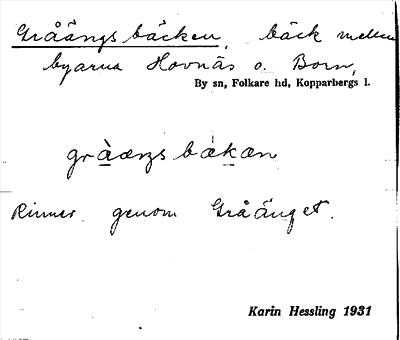 Gråängsbäcken, bäck mellan
byarna Hovnäs o. Born,
By sn, Folkare hd, Kopparbergs l.
gràængsbàkæn
Rinner genom Gråänget.
Karin Hessling 1931